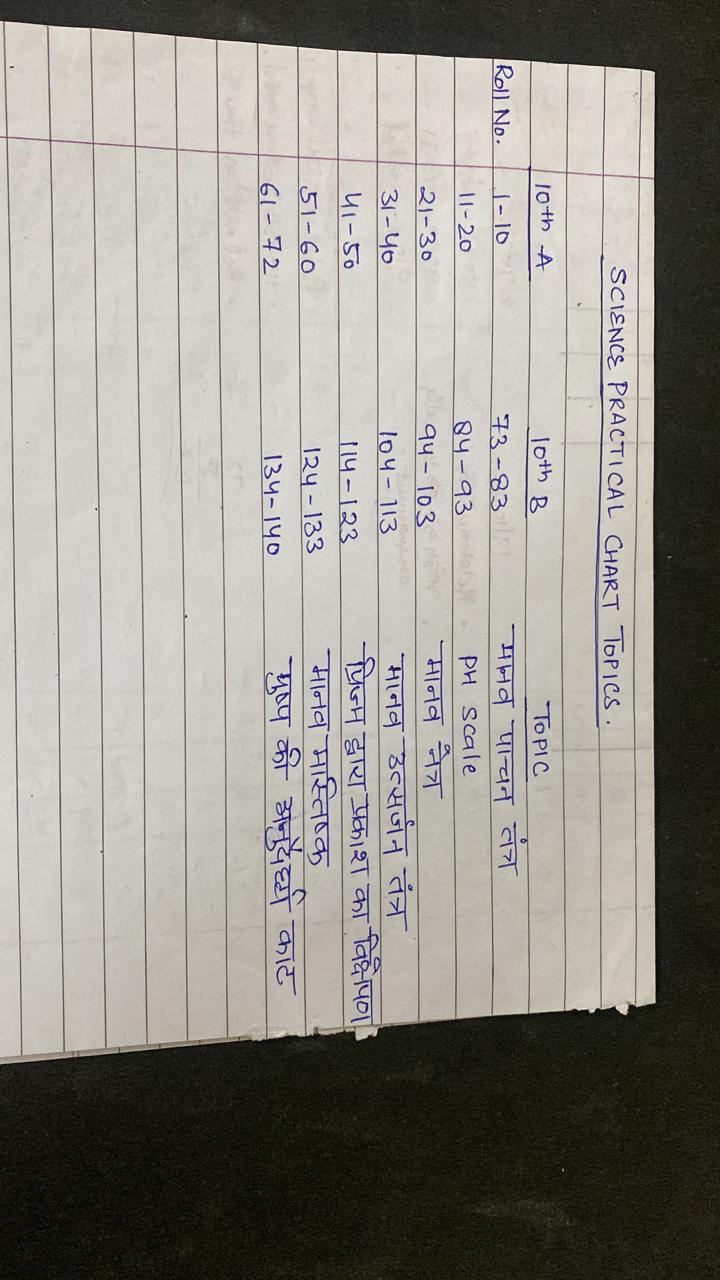 SCIENCE PRACTICAL CHART TOPICS.
10th A 10th B TOPIC
Roll No. 1-10 73-83 मानव पाचन तंत्र
11-20 84-93 PH Scale
21-30 94-103 मानव नेत्र
31-40 104-113 मानव उत्सर्जन तंत्र
41-50 114-123 प्रिज्म द्वारा प्रकाश का विक्षेपण
51-60 124-133 मानव मस्तिष्क
61-72 134-140 पुष्प की अनुदैर्ध्य काट